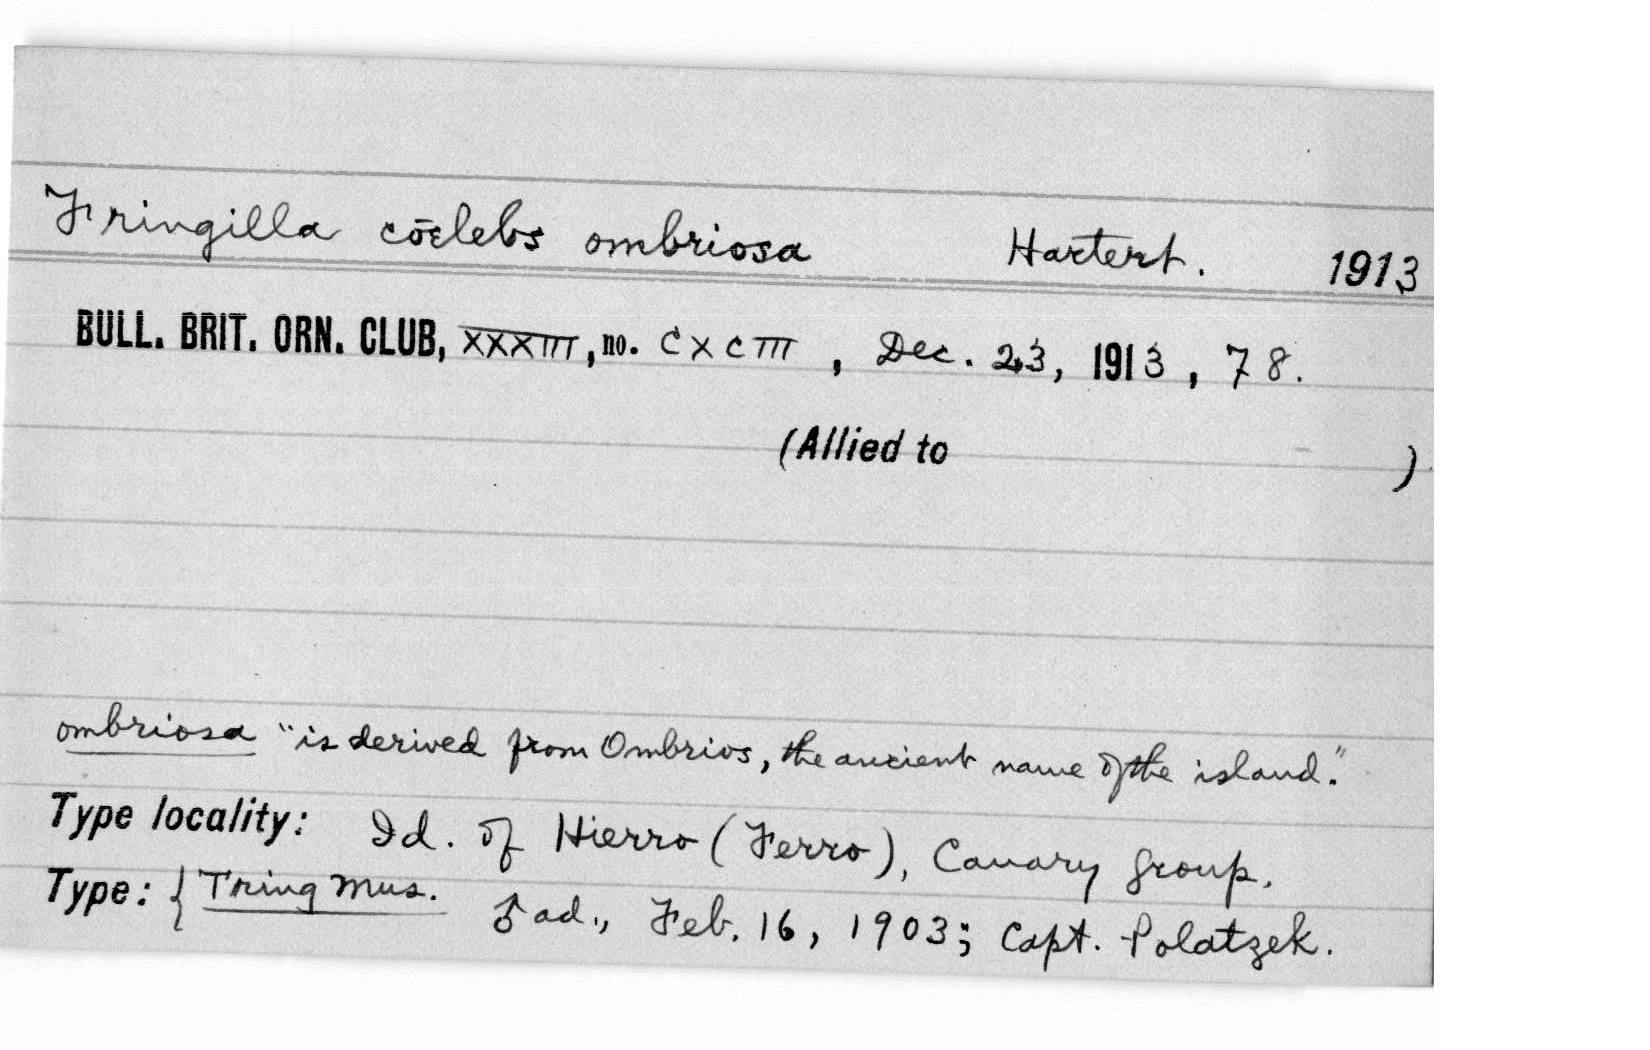 Fringilla cōelebs ombriosa Hartert. 1913
BULL. BRIT. ORN. CLUB, XXXIII, no. CXCIII, Dec. 23, 1913, 78.
(Allied to )
ombriosa "is derived from Ombrios, the ancient name of the island."
Type locality: Id. of Hierro (Ferro), Canary group.
Type: { Tring Mus. ♂ ad., Feb. 16, 1903; Capt. Polatzek.